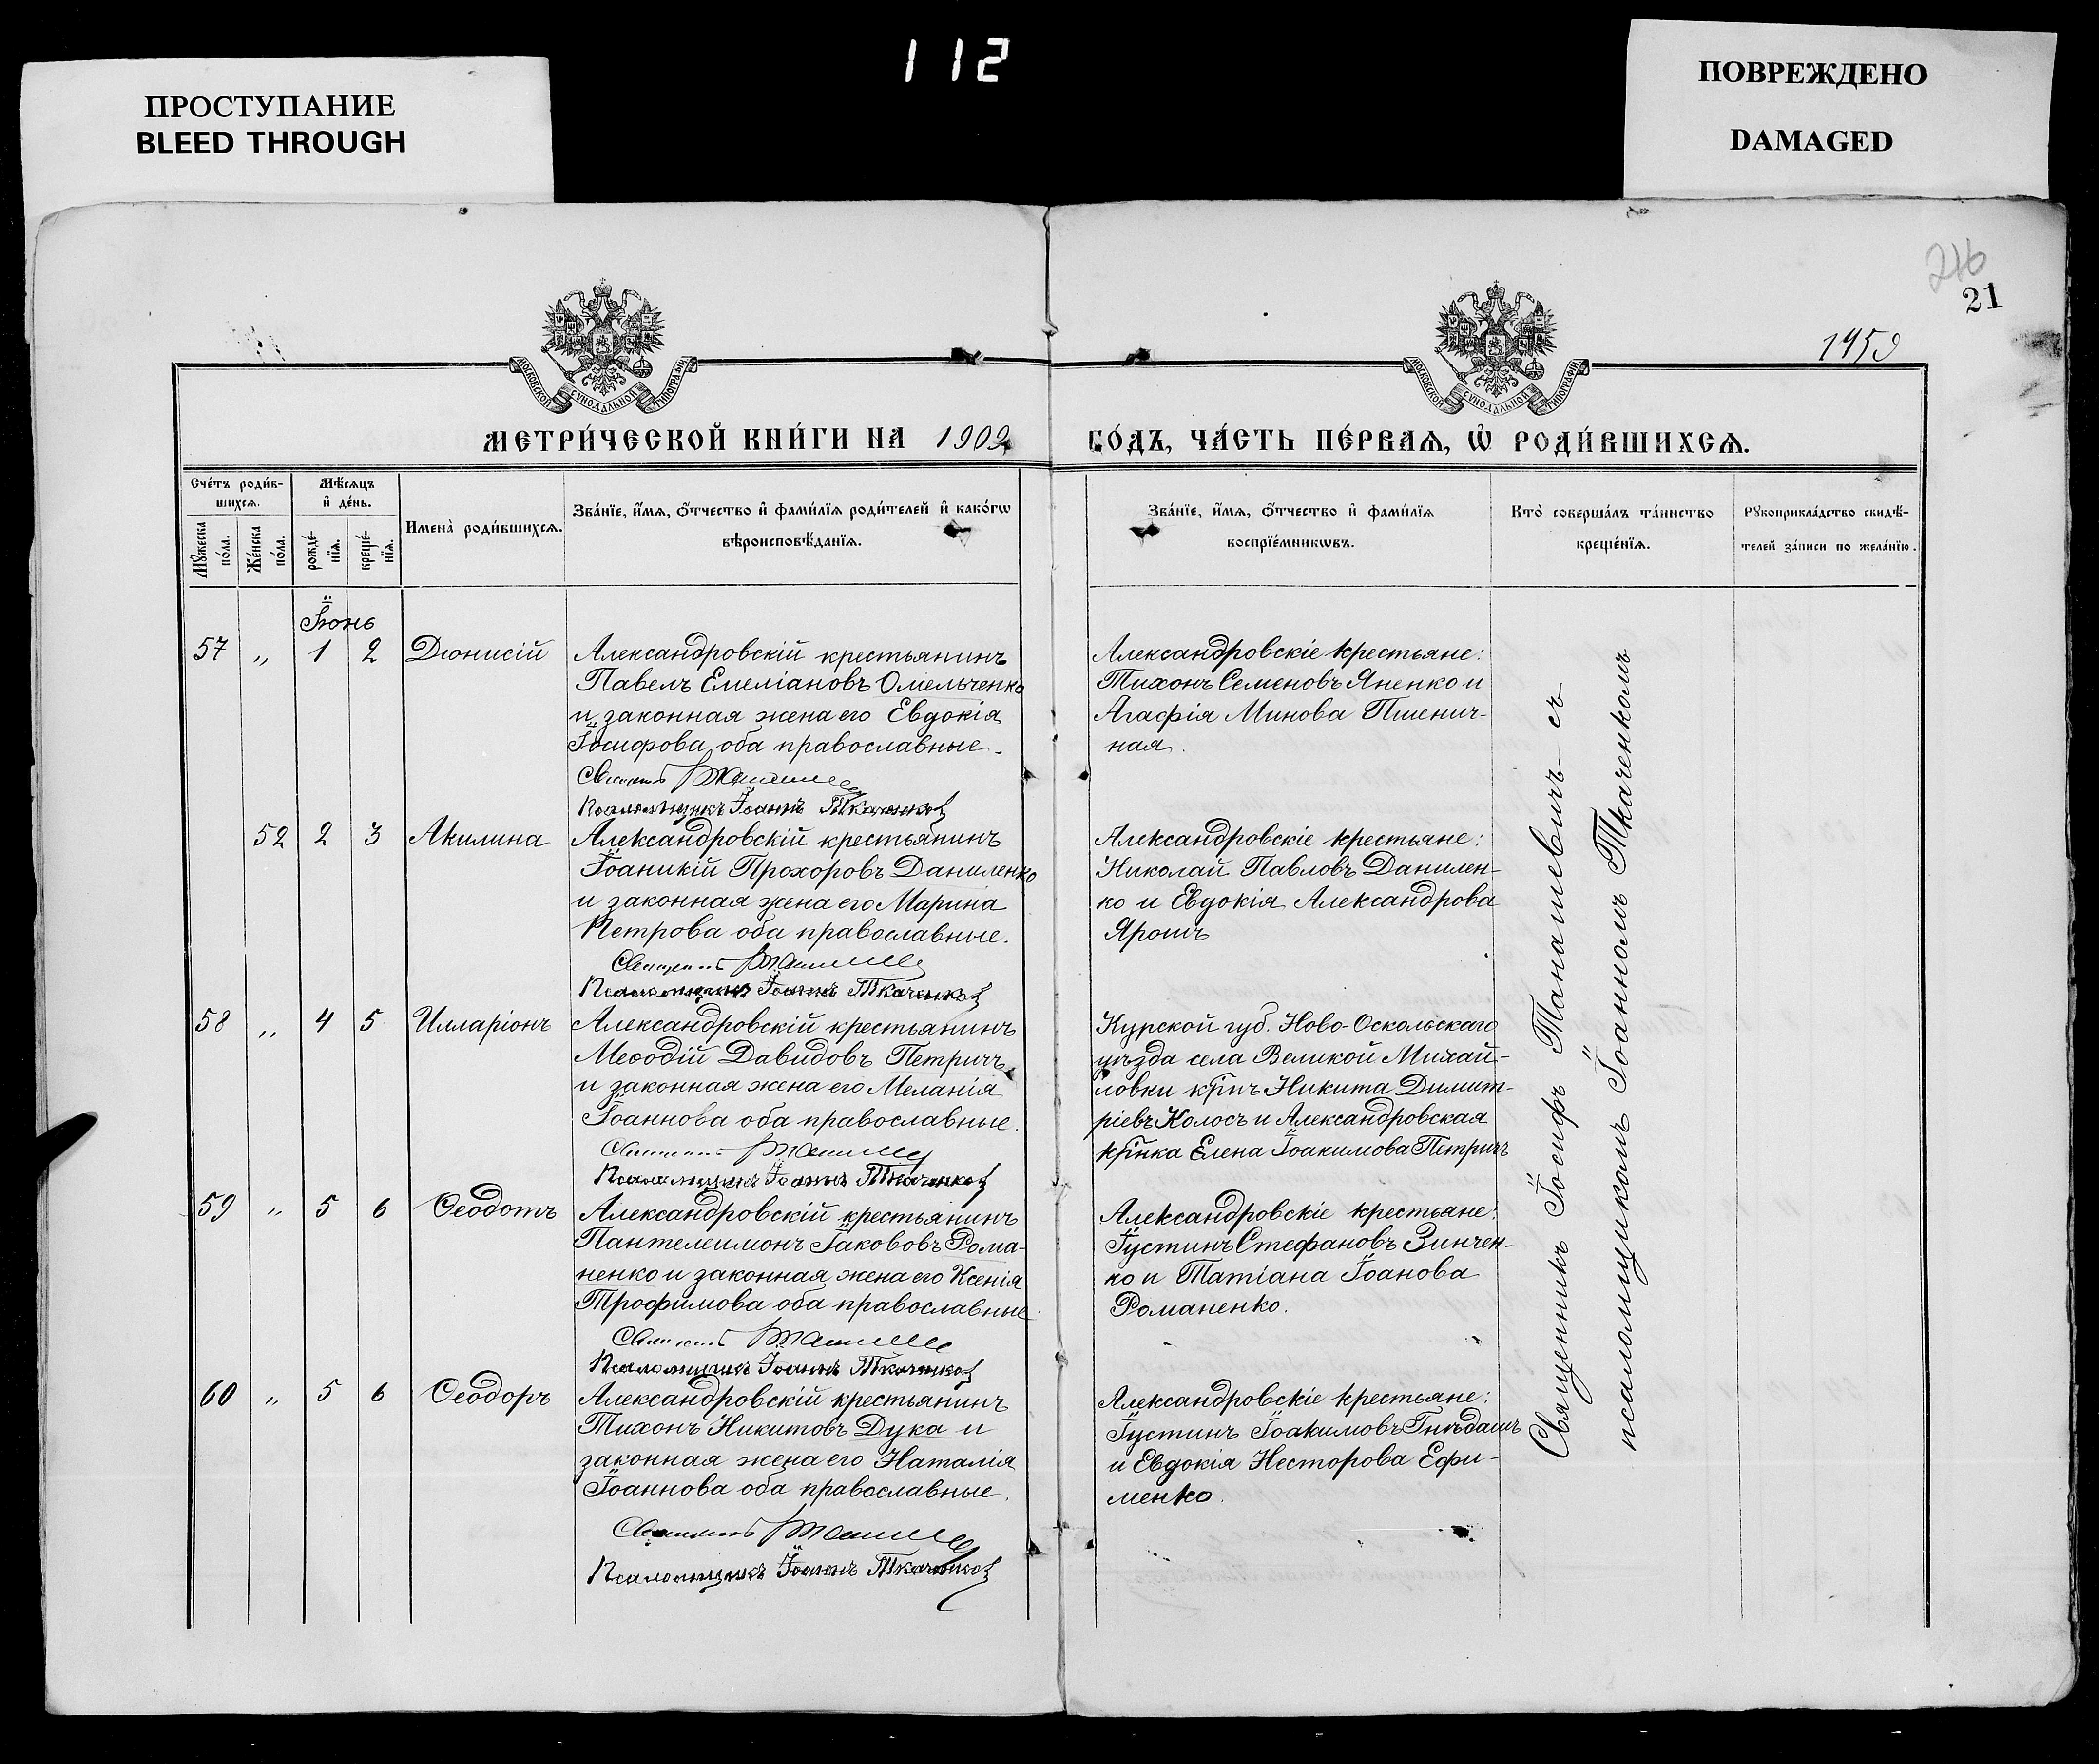 112
ПРОСТУПАНИЕ
BLEED THROUGH
ПОВРЕЖДЕНО
DAMAGED
216
21
1459
МОСКОВСКОЙ СѴНОДАЛЬНОЙ ТИПОГРАФІИ
МОСКОВСКОЙ СѴНОДАЛЬНОЙ ТИПОГРАФІИ
МЕТРИ́ЧЕСКОЙ КНИ́ГИ НА 1909
ГО́ДЪ, ЧА́СТЬ ПЕ́РВАѦ, Ѡ҆ РОДИ́ВШИХСѦ.
Сче́тъ роди́в-
шихсѧ.
Мѣ́сѧцъ
и҆ де́нь.
Мꙋ́жеска
по́ла.
Же́нска
по́ла.
рожде́-
нїѧ.
креще́-
нїѧ.
Имена̀ роди́вшихсѧ.
Зва́нїе, и҆́мѧ, ѻ҆́тчество и҆ фами́лїѧ роди́телей и҆ како́гѡ
вѣроисповѣ́данїѧ.
Зва́нїе, и҆́мѧ, ѻ҆́тчество и҆ фами́лїѧ
воспрїе́мникѡвъ.
Кто̀ соверша́лъ та́инство
креще́нїѧ.
Рꙋкоприкла́дство свидѣ́-
телей за́писи по жела́нїю.
Іюнь
57 " 1 2 Діонисій
Александровскій крестьянинъ
Павелъ Емеліановъ Омельченко
и законная жена его Евдокія
Іосифова, оба православные.
Псаломщикъ Іоаннъ Ткаченко
Александровскіе крестьяне:
Тихонъ Семеновъ Яненко и
Агафія Минова Пшенич-
ная.
52 2 3 Акилина
Александровскій крестьянинъ
Іоаникій Прохоровъ Даниленко
и законная жена его Марина
Петрова оба православные.
Псаломщикъ Іоаннъ Ткаченко
Александровскіе крестьяне:
Николай Павловъ Данилен-
ко и Евдокія Александрова
Ярошъ
58 " 4 5 Илларіонъ
Александровскій крестьянинъ
Меѳодій Давидовъ Петричъ
и законная жена его Меланія
Іоаннова оба православные.
Псаломщикъ Іоаннъ Ткаченко
Курской губ. Ново-Оскольскаго
уѣзда села Великой Михай-
ловки крнъ Никита Димит-
ріевъ Колосъ и Александровская
крнка Елена Іоакимова Петричъ
59 " 5 6 Ѳеодотъ
Александровскій крестьянинъ
Пантелеимонъ Іаковъвъ Рома-
ненко и законная жена его Ксенія
Трофимова оба православные.
Псаломщикъ Іоаннъ Ткаченко
Александровскіе крестьяне:
Іустинъ Стефановъ Зинчен-
ко и Татіана Іоанова
Романенко.
60 " 5 6 Ѳеодоръ
Александровскій крестьянинъ
Тихонъ Никитовъ Дука и
законная жена его Наталія
Іоаннова оба православные.
Псаломщикъ Іоаннъ Ткаченко
Александровскіе крестьяне:
Іустинъ Іоакимовъ Гнѣдашъ
и Евдокія Несторова Ефи-
менко.
Священникъ Іосифъ Танашевичъ съ
псаломщикомъ Іоанномъ Ткаченкомъ